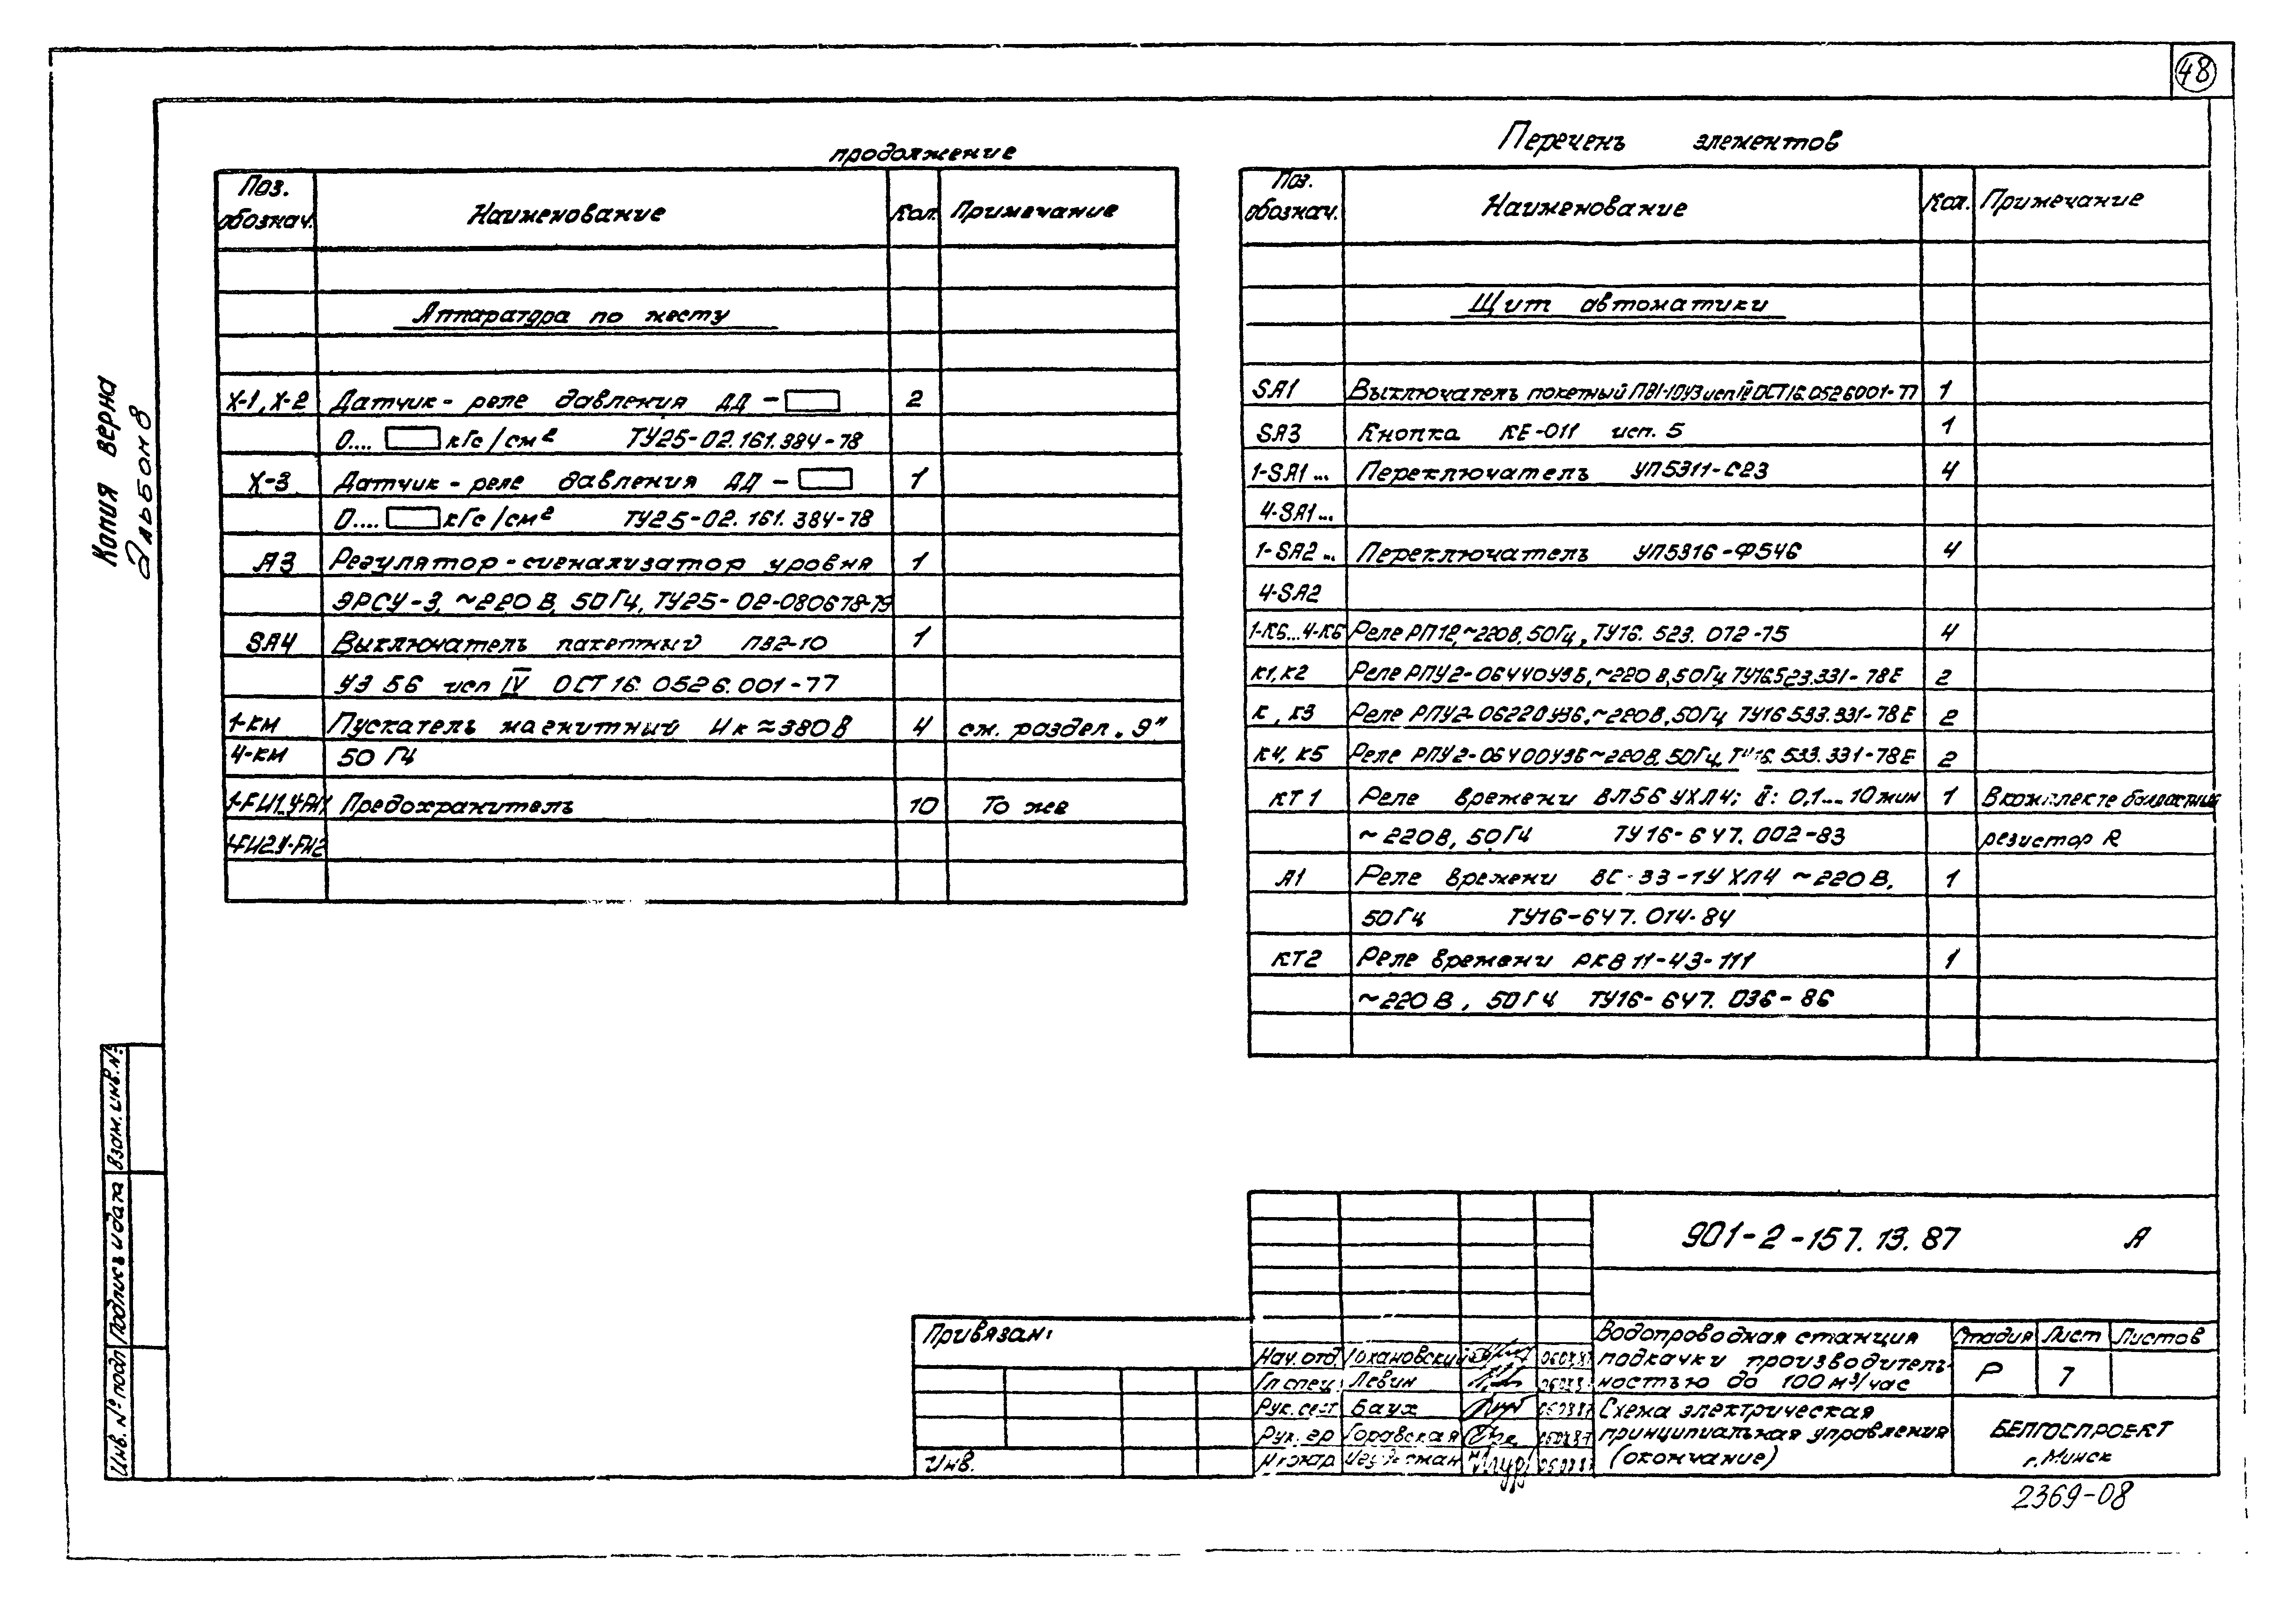 48
Копия верна
Альбом 8
продолжение
Поз. обознач. Наименование Кол. Примечание
Аппаратура по месту
X-1, X-2 Датчик-реле давления ДД- 2
0.... кГс/см² ТУ25-02.161.384-78
X-3 Датчик-реле давления ДД- 1
0.... кГс/см² ТУ25-02.161.384-78
А3 Регулятор-сигнализатор уровня 1
ЭРСУ-3, ~220 В, 50 Гц, ТУ25-02-080678-79
SA4 Выключатель пакетный ПВ2-10 1
У3 56 исп IV ОСТ 16. 0526.001-77
1-КМ Пускатель магнитный Uк≈380В 4 см. раздел „Э"
4-КМ 50 Гц
Предохранитель 10 То же
Перечень элементов
Поз. обознач. Наименование Кол. Примечание
Щит автоматики
SA1 Выключатель пакетный ПВ1-10У3 исп IV ОСТ16.0526001-77 1
SA3 Кнопка КЕ-011 исп. 5 1
1-SA1... Переключатель УП5311-С23 4
4-SA1...
1-SA2... Переключатель УП5316-Ф546 4
4-SA2
1-К6...4-К6 Реле РП12, ~220В, 50Гц, ТУ16. 523. 072-75 4
К1, К2 Реле РПУ2-06440У3Б, ~220 В, 50Гц ТУ16523.331-78Е 2
К, К3 Реле РПУ2-06220У3Б, ~220В, 50Гц ТУ16 533.331-78Е 2
К4, К5 Реле РПУ2-06400У3Б ~220В, 50Гц, ТУ16. 533. 331-78Е 2
КТ1 Реле времени ВЛ56 УХЛ4; 0,1...10 мин 1 В комплекте балластный
~220В, 50Гц ТУ16-647.002-83 резистор R
А1 Реле времени ВС-33-1УХЛ4 ~220 В, 1
50Гц ТУ16-647.014-84
КТ2 Реле времени РКВ 11-43-111 1
~220 В, 50Гц ТУ16-647.036-86
Взам. инв. №
Подпись и дата
Инв. № подл
Привязан:
Инв.
901-2-157.13.87 А
Нач. отд
Гл спец. Левин
Рук. сект Баух
Рук. гр Горавская
Н. контр
Водопроводная станция
подкачки производитель-
ностью до 100 м³/час
Стадия Лист Листов
Р 7
Схема электрическая
принципиальная управления
(окончание)
БЕЛГОСПРОЕКТ
г. Минск
2369-08